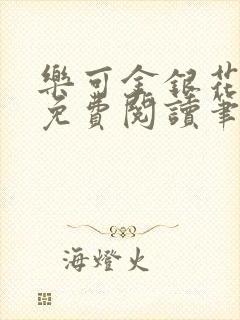 樂可金銀花
免費閱讀筆
海燈火